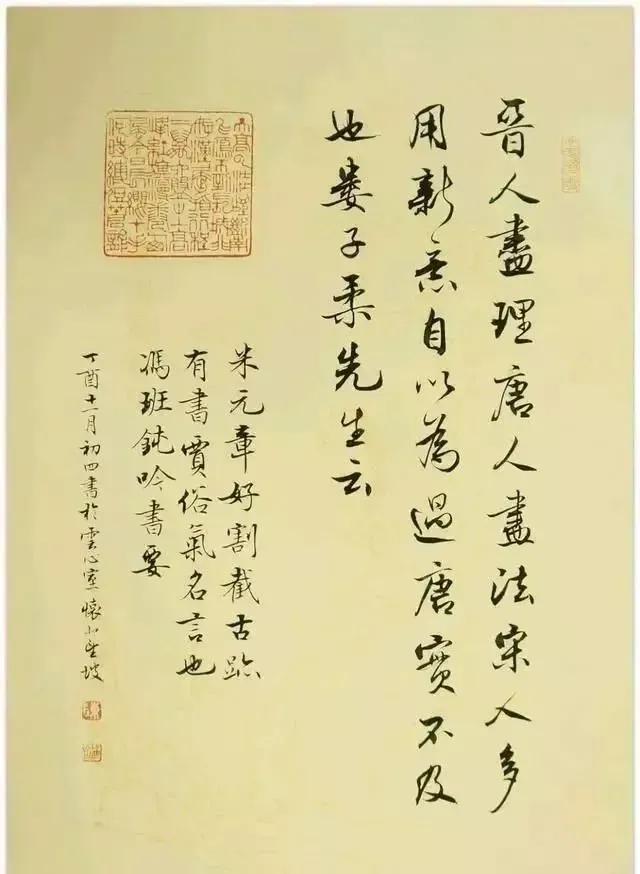 晉人盡理唐人盡法宋人多
用新意自以為過唐實不及
也婁子柔先生云
米元章好割截古跡
有書賈俗氣名言也
馮班鈍吟書要
丁酉十一月初四書於雲心室